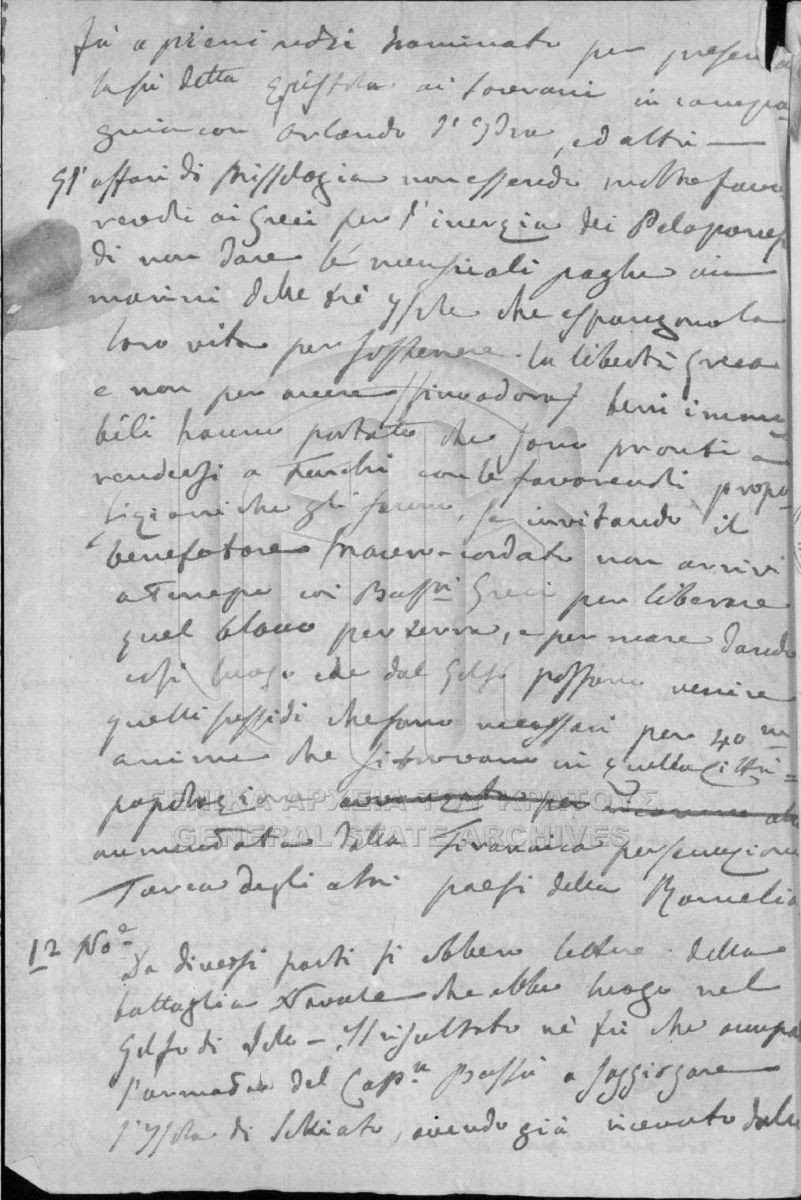 fù a pieni nominato per presen
la sù detta Epistola ai Soverani in compa=
gnia con Orlando d'Ydra, ed altri —
Gl'affari di Missologia non essendo molto favo
revoli ai Greci per l'inergia dei Peloponep
di non dare le mensuali paghe ai
marini delle tré ysole che espongono la
loro vita per sostenere la libertà Greca
e non per avere beni immo
bili hanno portato che sono pronti a
rendersi a Turchi con le favorevoli propo
sizioni che gli fanno, se invitando il
benefatore Mavro-cordato non arrivi
a tempo coi Greci per liberare
quel bloco per terra, e per mare dando
cosi luogo che dal Golfo possono venire
quelli sussidi che sono necessari per 40 m
anime che si trovano in quella Città=
popolazio
aumentata dalla Tiranica persecuzione
Turca degli altri paesi della Romelia
12 No.e
Da diversi parti si ebbero lettere della
battaglia Navale che ebbe luogo nel
Golfo di Volo — Il risultato nè fù che
l'armata del Cap.n Bassà a soggiogare
l'ysola di Schiato, avendo già ricevuto dalla
GENERAL STATE ARCHIVES